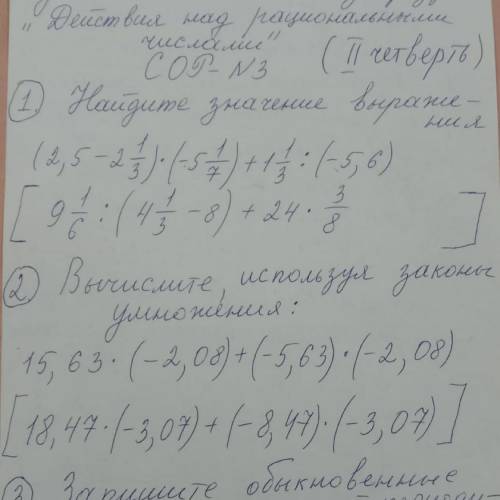 "Действия над рациональными
числами"
СОР-N3 (II четверть)
1. Найдите значение выраже-
ния
(2,5 - 2 1/3) · (-5 1/7) + 1 1/3 : (-5,6)
[ 9 1/6 : (4 1/3 - 8) + 24 · 3/8 ]
2. Вычислите, используя законы
умножения:
15,63 · (-2,08) + (-5,63) · (-2,08)
[18,47 · (-3,07) + (-8,47) · (-3,07)]
3. Запишите обыкновенные